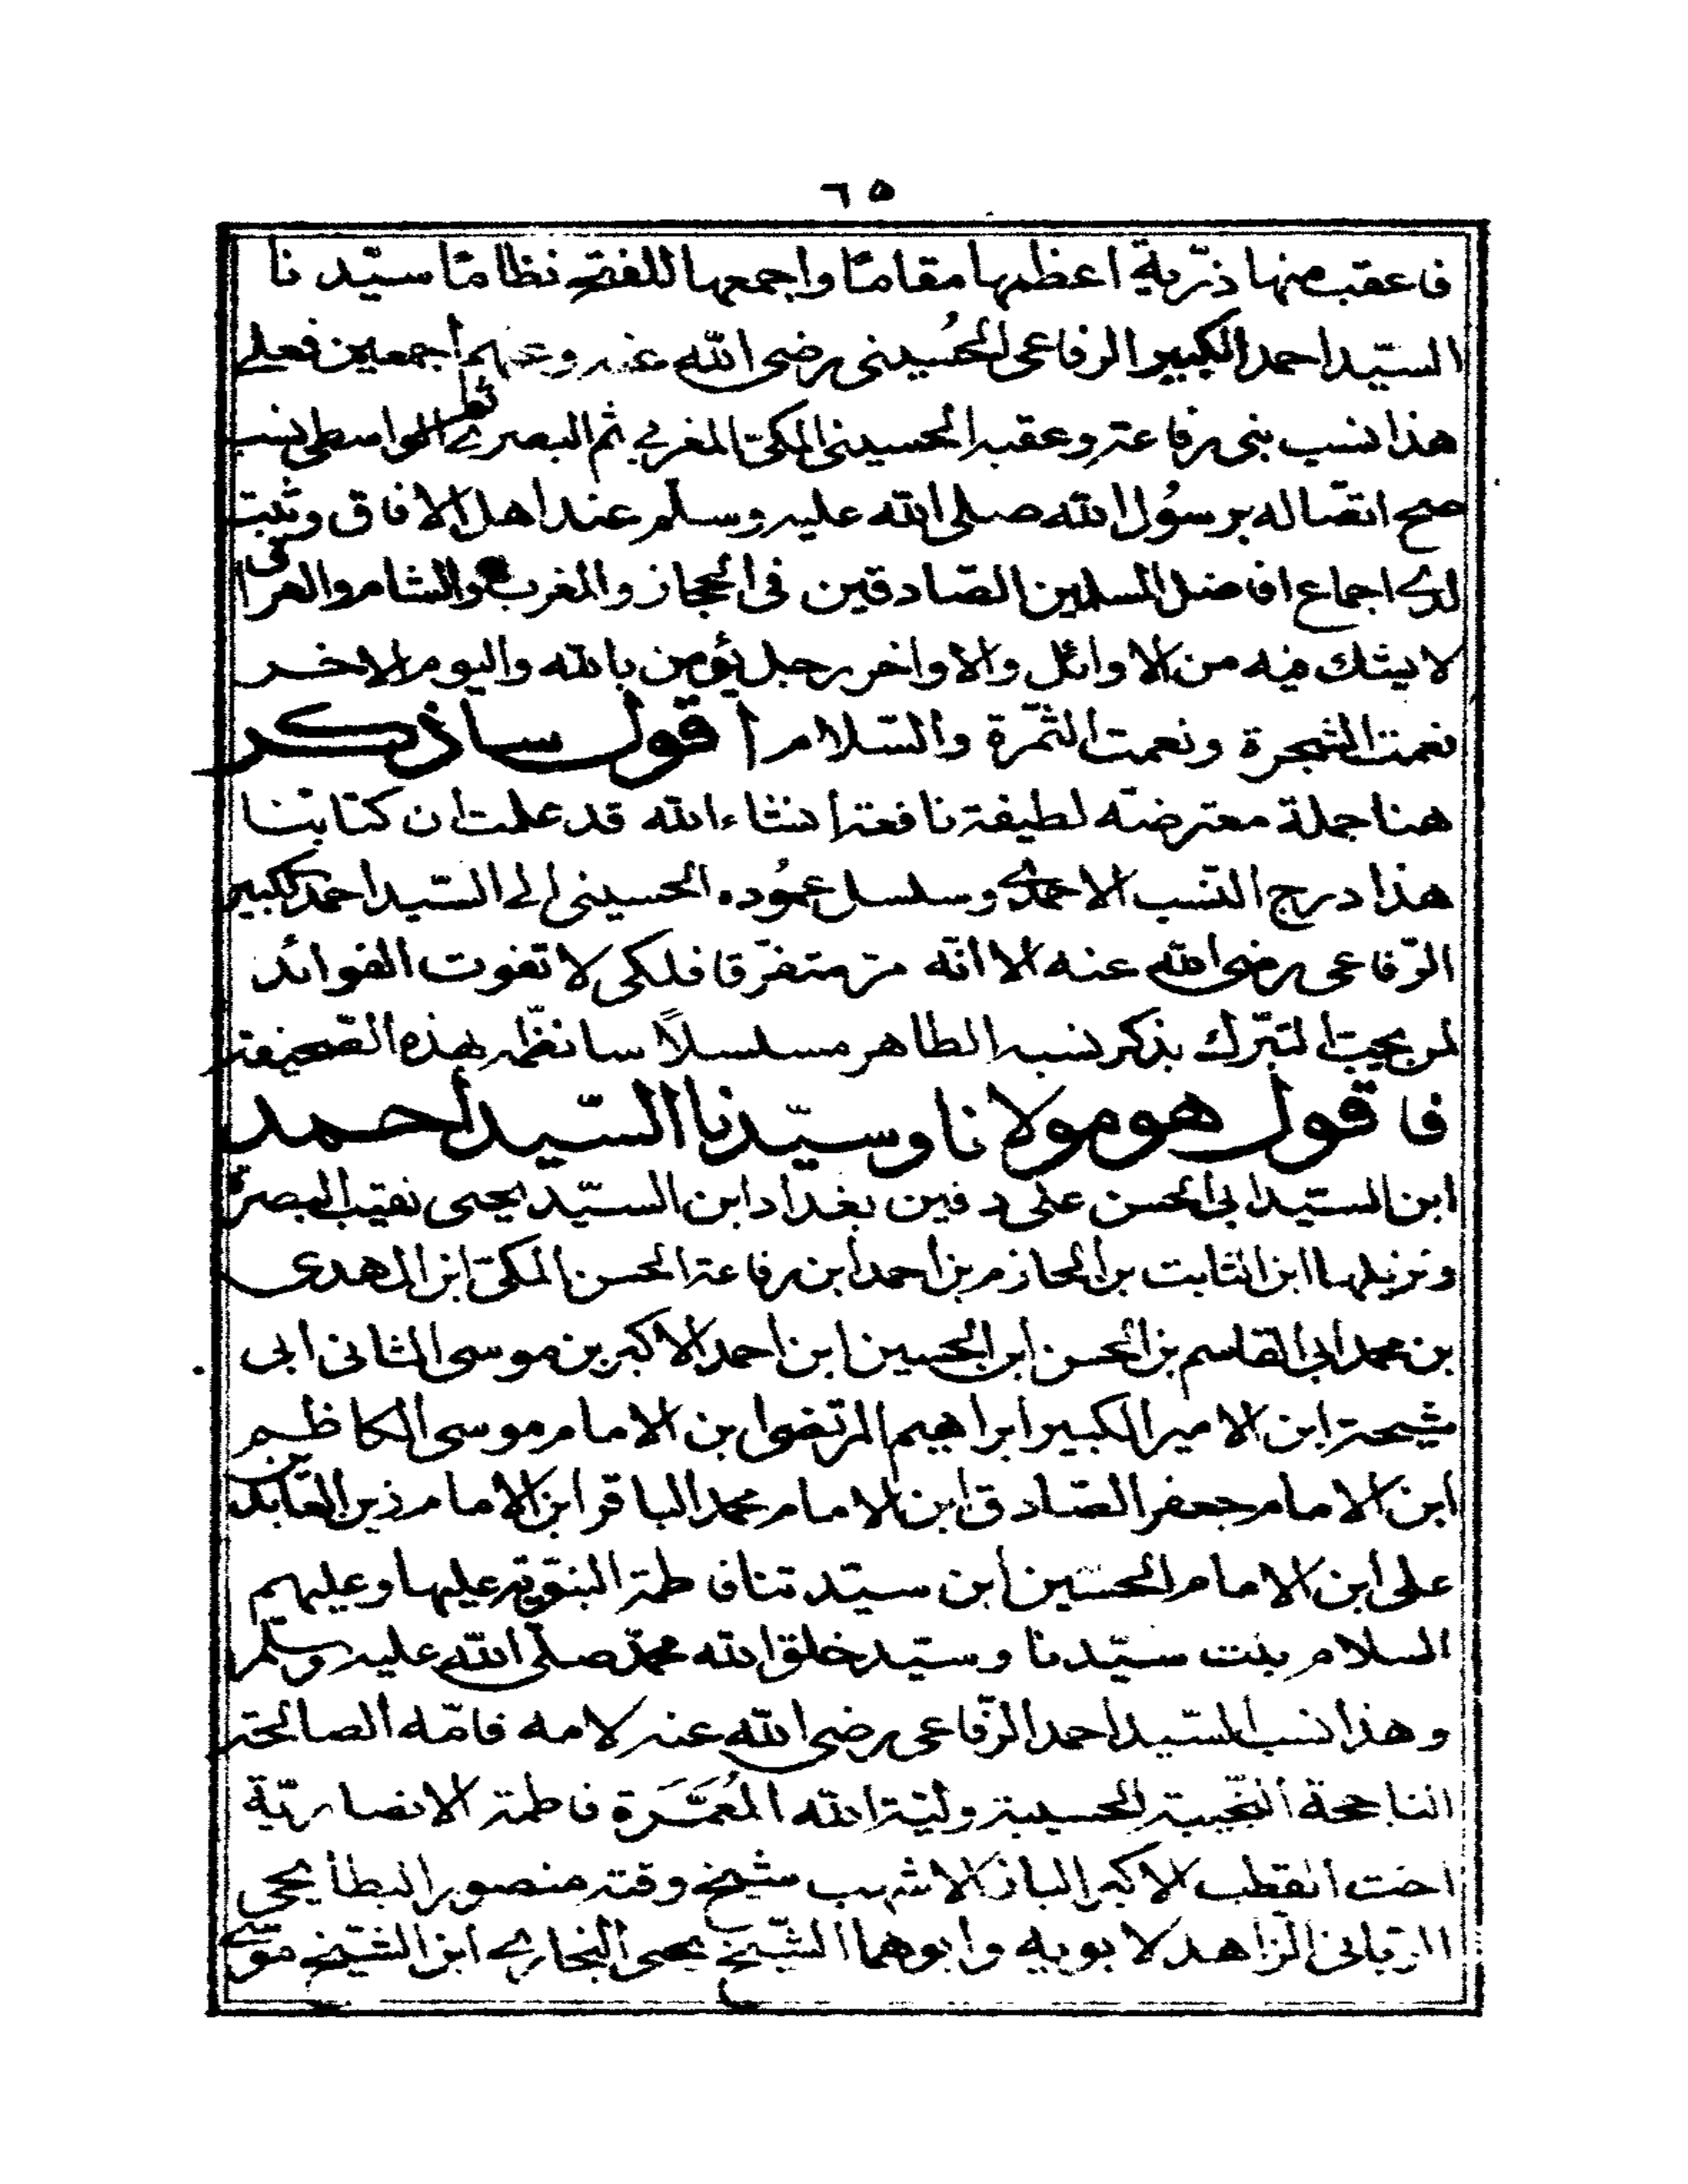 ٦٥
فاعقب منها ذرّية اعظمها مقامًا واجمعها للفتح نظامًا سيّدنا
السيّد احمد الكبير الرفاعى الحُسينى رضى الله عنه وعنهم اجمعين فعلى
هذا نسب بنى رفاعة وعقبه الحسينى المكى المغربي ثم البصرى الواسطى نسب
صح اتصاله برسُول الله صلى الله عليه وسلم عند اهل الافاق وثبت
لدى اجماع افاضل المسلمين الصّادقين فى الحجاز والمغرب والشام والعراق
لا يشك فيه من الاوائل والاواخر رجل يؤمن بالله واليوم الاخر
نعمت الشجرة ونعمت الثّمرة والسّلام اقول ساذكر
هنا جملة معترضة لطيفة نافعة انشاء الله قد علمت ان كتابنا
هذا درج النّسب الاحمدى وسلسل عمُوده الحسينى الى السّيد احمد الكبير
الرّفاعى رضى الله عنه الا انّه مرّ متفرّقا فلكى لا تفوت الفوائد
لمن يحبّ التبرّك بذكر نسبه الطاهر مسلسلًا سانظّمه بهذه الصّحيفة
فاقول هو مولانا وسيّدنا السيّد احمد
ابن السيّد ابى الحسن على دفين بغداد ابن السيّد يحيى نقيب البصرة
ونزيلها ابن الثابت بن الحازم بن احمد ابن رفاعة الحسن المكى ابن المهدى
بن محمد ابى القاسم بن الحسن ابن الحسين ابن احمد الاكبر بن موسى الثانى ابى
شيحة ابن الامير الكبير ابراهيم المرتضى ابن الامام موسى الكاظم
ابن الامام جعفر الصّادق ابن الامام محمد الباقر ابن الامام زين العابدين
على ابن الامام الحسين ابن سيّدتنا فاطمة النبويّة عليها وعليهم
السلام بنت سيّدنا وسيّد خلق الله محمّد صلّى الله عليه وسلم
وهذا نسب السّيد احمد الرّفاعى رضى الله عنه لامه فامّه الصالحة
الناجحة النّجيبة الحسيبة وليّة الله المُعَمَّرة فاطمة الانصاريّة
اخت القطب الاكبر الباز الاشهب شيخ وقته منصور البطايحى
الرّبانى الزّاهد لابويه وابوهما الشّيخ يحيى النجارى ابن الشّيخ موسى